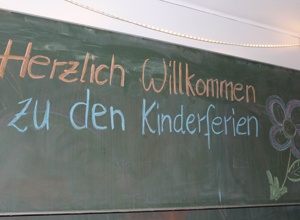 Herzlich Willkommen
zu den Kinderferien